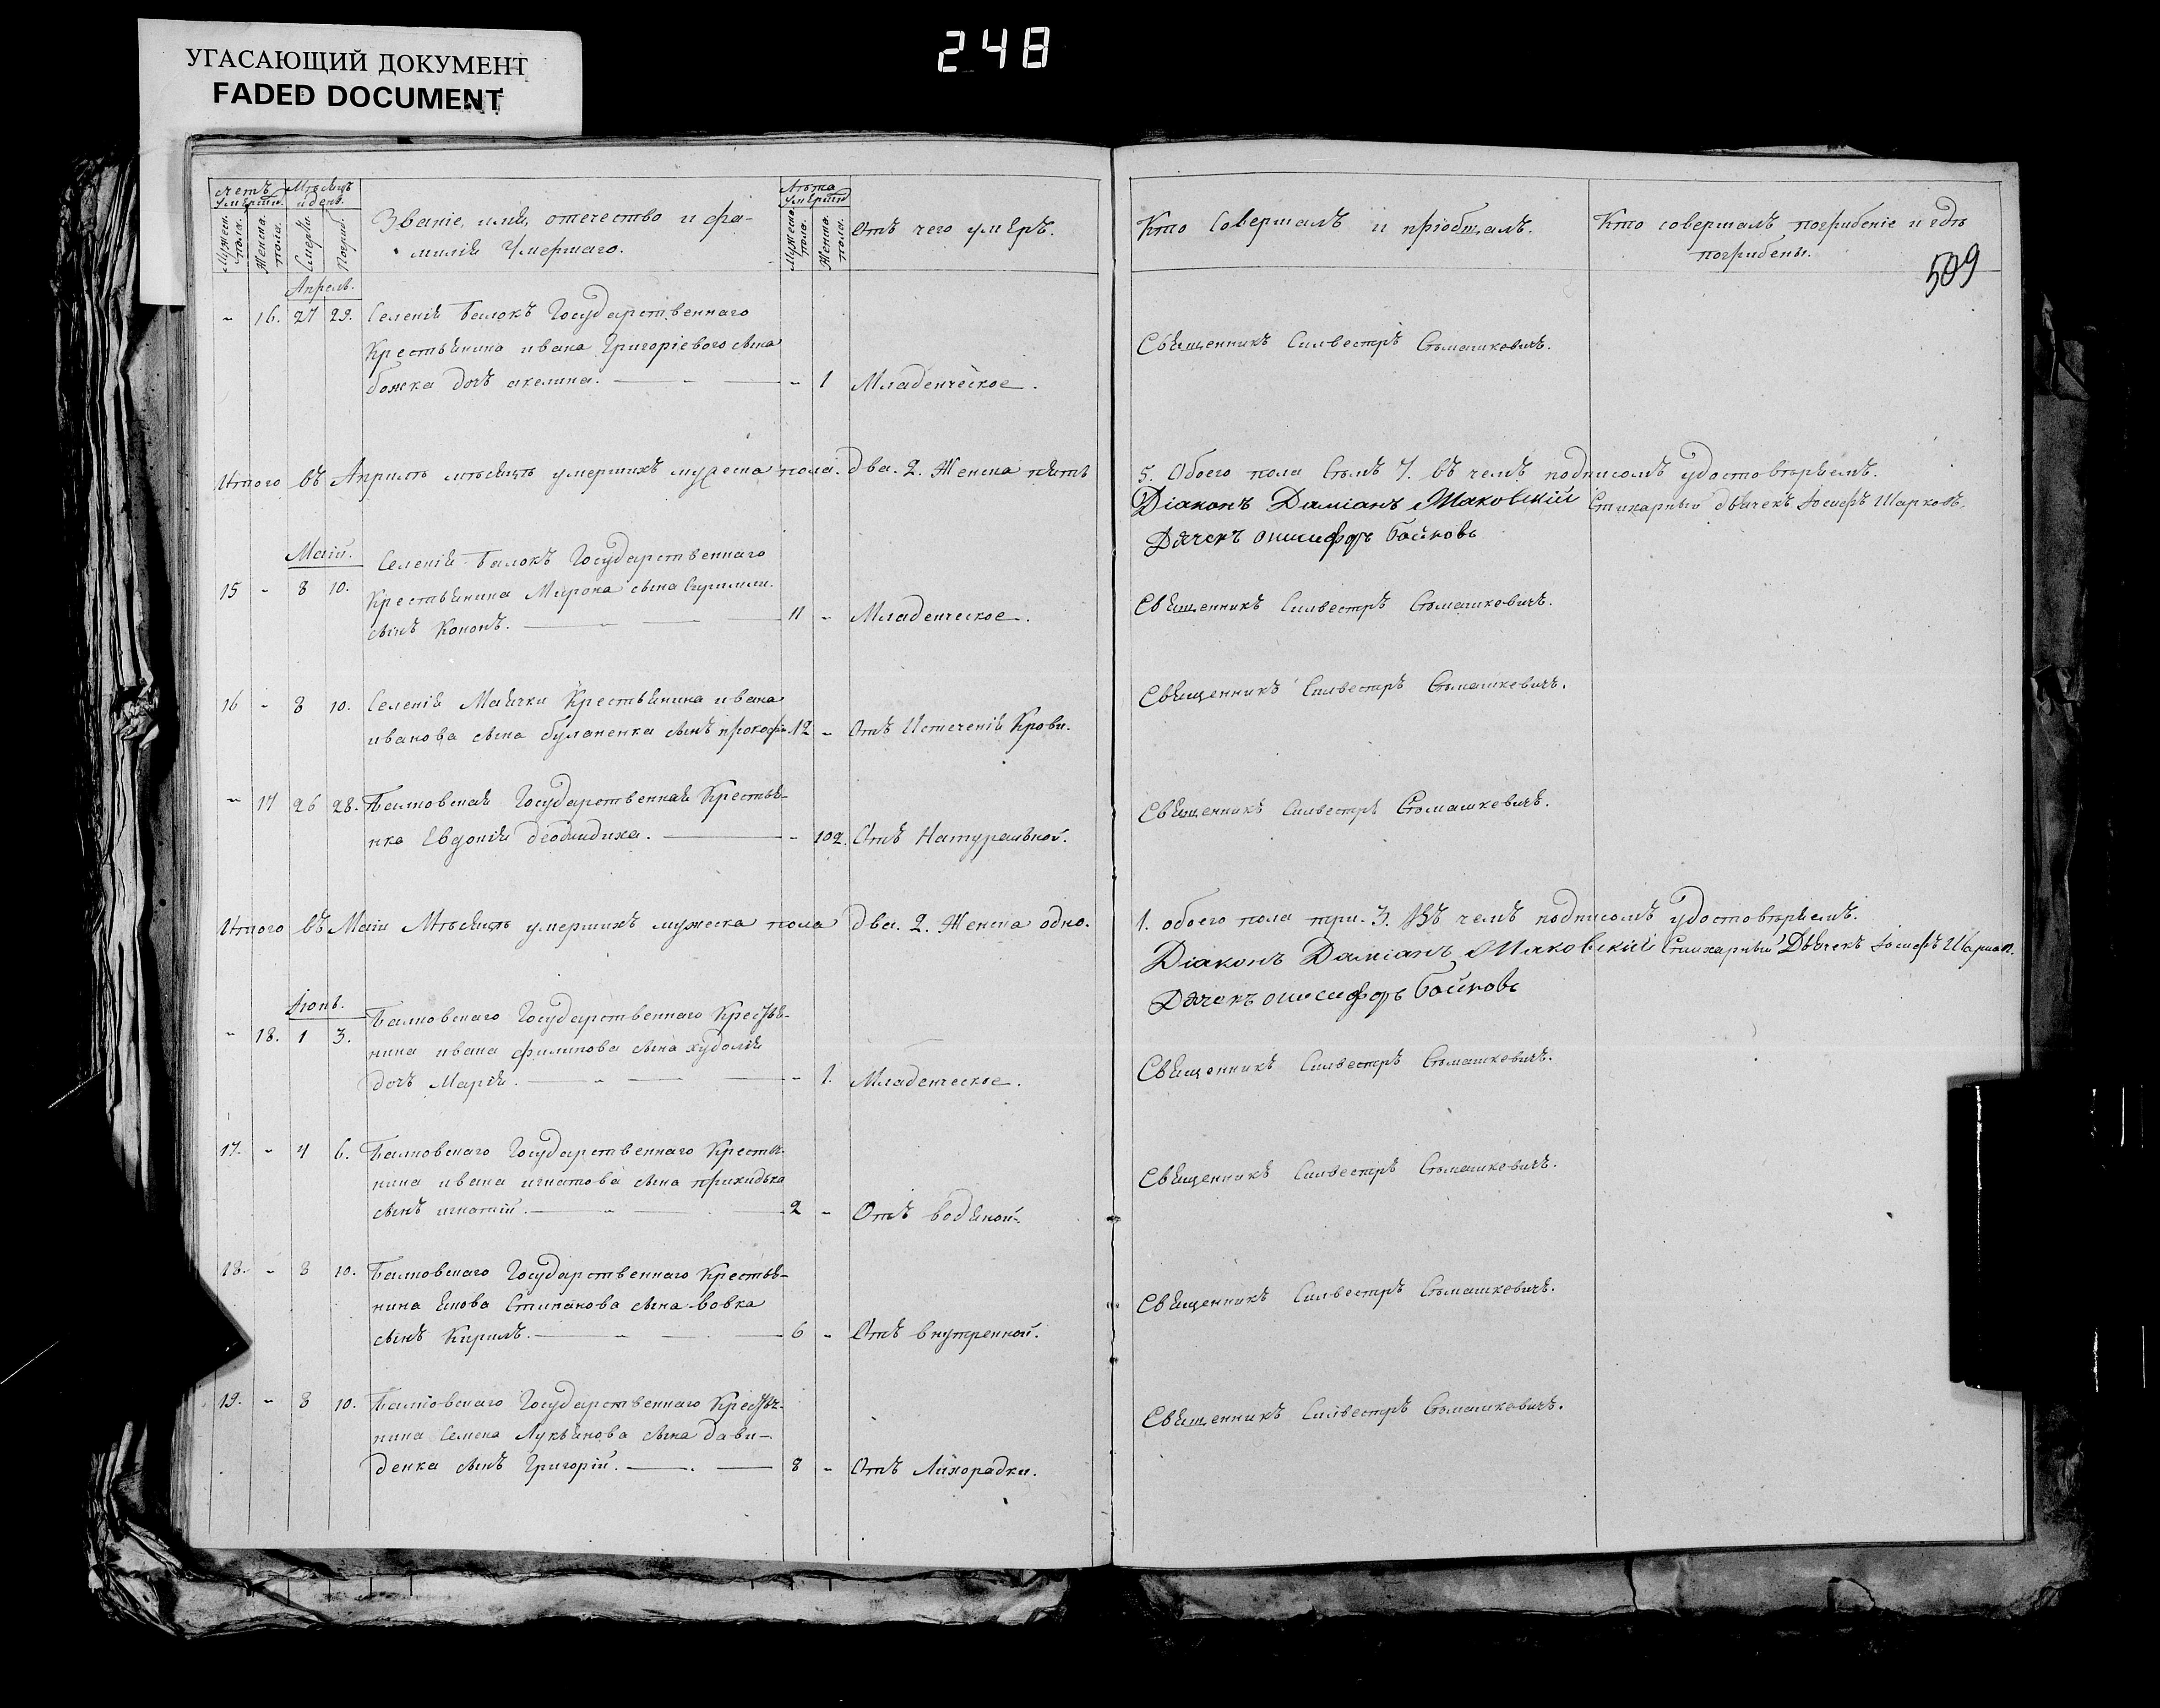 248
УГАСАЮЩИЙ ДОКУМЕНТ
FADED DOCUMENT
счетъ умершихъ.
Мужеск. пола.
Женска. пола.
Мѣсяцъ и день.
Смерти.
Погреб.
Званіе, имя, отечество и фа-
милія Умершаго.
Лѣта умершихъ
Мужеск. пола.
Женска. пола.
Отъ чего умеръ.
Кто Совершалъ и пріобщалъ.
Кто совершалъ погрибеніе и гдѣ
погрибены.
509
Апрель.
- 16. 27 29. Селенія Балокъ Государственнаго
Крестьянина ивана Григоріевого сына
божка дочъ акелина. - 1 Младенческое.
Священникъ Силвестръ Сѣмашкевичъ.
Итого въ Априлѣ мѣсяцѣ умершихъ мужеска пола. два. 2. Женска пять
5. Обоего пола Сѣмъ 7. въ чемъ подписомъ удостовѣряемъ.
Діаконъ Даміанъ Маковскій Стихарный дьячекъ Іосифъ Шарковъ.
Дячекъ онисифоръ Бойковъ
Маій.
Селенія Балокъ Государственнаго
15 - 8 10. Крестьянина Мирона сына
сынъ Кононъ. 11 - Младенческое.
Священникъ Силвестръ Сѣмашкевичъ.
16 - 8 10. Селенія Маячки Крестьянина ивана
иванова сына буланенка сынъ прокофи. 12 - Отъ Истеченія Крови.
Священникъ Силвестръ Сѣмашкевичъ.
- 17 26 28. Балковская Государственная Крестья-
нка Евдокія - 102. Отъ Натуралъной.
Священникъ Силвестръ Сѣмашкевичъ.
Итого въ Маіи Мѣсяцѣ умершихъ мужеска пола два. 2. Женска одно.
1. обоего пола три. 3. Въ чемъ подписомъ удостовѣряемъ.
Діаконъ Даміанъ Маковскій Стихарный Дьячекъ Іосифъ
Дячекъ онисифоръ Бойковъ
Іюнь.
Балковскаго Государственнаго Крестья-
- 18. 1 3. нина ивана филипова сына худолія
дочъ Марія. - 1. Младенческое.
Священникъ Силвестръ Сѣмашкевичъ.
17. - 4 6. Балковскаго Государственнаго Крестья-
нина ивана игнатова сына прихидька
сынъ игнатій. 2 - Отъ водяной.
Священникъ Силвестръ Сѣмашкевичъ.
18. - 8 10. Балковскаго Государственнаго Крестья-
нина Якова Стипанова сына вовка
сынъ Кирилъ. 6 - Отъ внутренной.
Священникъ Силвестръ Сѣмашкевичъ.
19. - 8 10. Балковскаго Государственнаго Крестья-
нина Семена Лукьянова сына дави-
денка сынъ Григорій. 8 - Отъ Лихорадки.
Священникъ Силвестръ Сѣмашкевичъ.